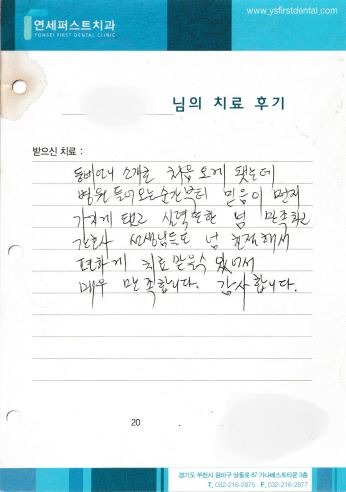 www.ysfirstdental.com
연세퍼스트치과
YONSEI FIRST DENTAL CLINIC
님의 치료 후기
받으신 치료 :
동비언니 소개로 처음 오게 됐는데
병원 들어오는순간부터 믿음이 먼저
가지게 됐고 실력또한 넘 만족하고
간호사 선생님들도 넘 친절해서
편하게 치료 받을수 있어서
매우 만족합니다. 감사합니다.
20 .
경기도 부천시 원미구 상동로 87 가나베스트타운 3층
T. 032-216-2875 F. 032-216-2877